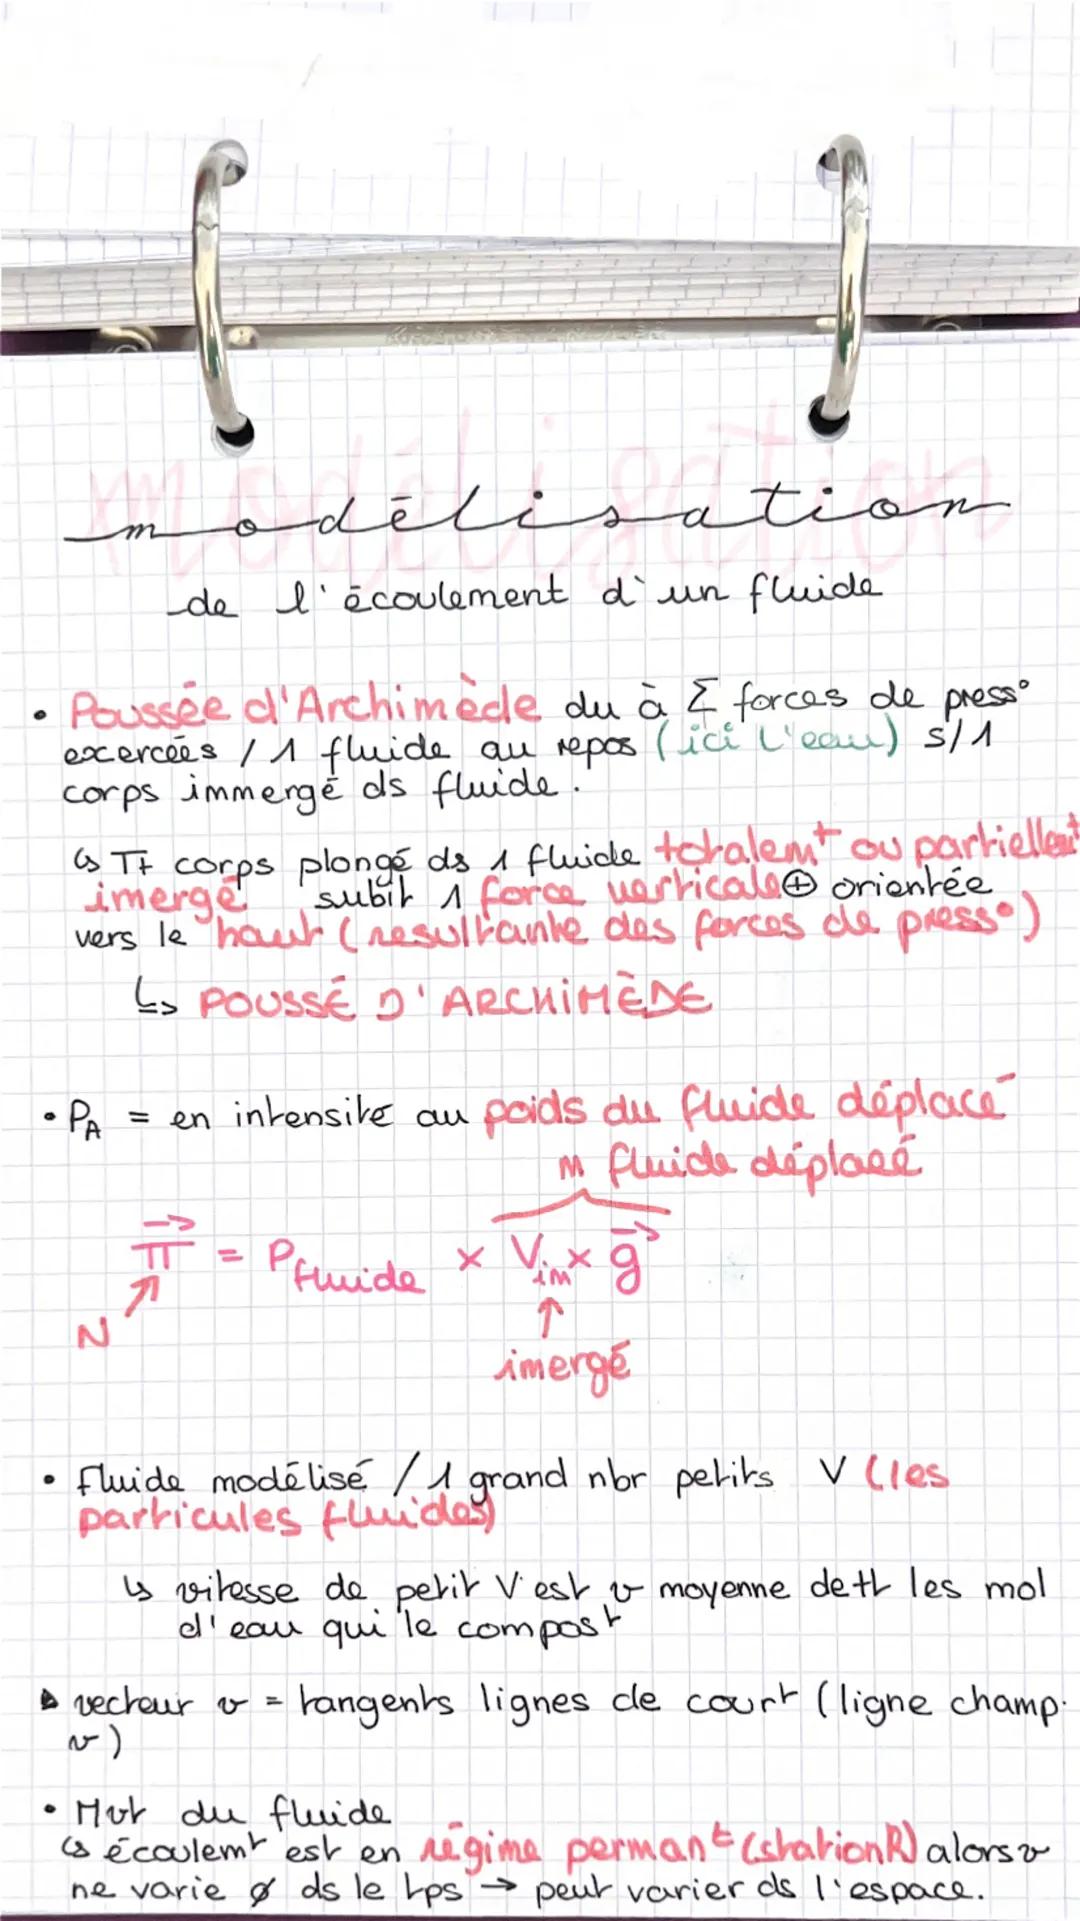 modélisation
de l'écoulement d'un fluide
• Poussée d'Archimède du à Σ forces de press°
excercées / 1 fluide au repos (ici l'eau) s/1
corps immergé ds fluide.
↳ Tt corps plongé ds 1 fluide totalemt ou partiellemt
imergé subit 1 force verticale ⊕ orientée
vers le haut (resultante des forces de press°)
↳ POUSSÉ D'ARCHIMÈDE
• PA = en intensité au poids du fluide déplacé
m fluide déplacé
π = ρfluide × Vim × g
N
imergé
• Fluide modélisé / 1 grand nbr petits V (les
particules fluides)
↳ vitesse de petit V est v moyenne de tt les mol
d'eau qui le compost
▲ vecteur v = tangents lignes de court (ligne champ.
v)
• Mvt du fluide
↳ écoulemt est en régime permant (stationR) alors v
ne varie ∅ ds le tps → peut varier ds l'espace.